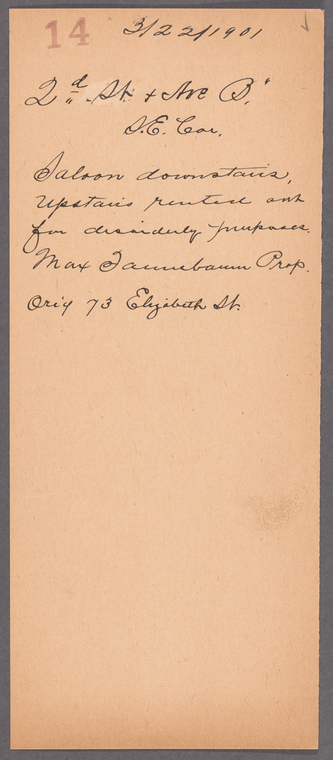 14 3/22/1901
2d. St. & Ave B."
S.E. Cor.
Saloon downstairs,
upstairs rented out
for disorderly purposes.
Max Tannebaum Prop.
Orig 73 Elizabeth St.